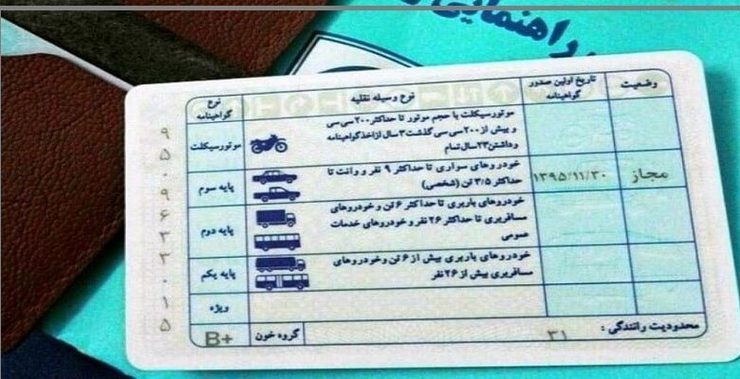 راهنمایی
وضعیت
تاریخ اولین صدور گواهینامه
نوع وسیله نقلیه
نوع گواهینامه
موتورسیکلت با حجم موتور تا حداکثر ۲۰۰ سی سی
و بیش از ۲۰۰ سی سی گذشت ۳ سال از اخذ گواهینامه
و داشتن ۲۳ سال تمام
موتورسیکلت
مجاز
۱۳۹۵/۱۱/۳۰
خودروهای سواری تا حداکثر ۹ نفر و وانت تا
حداکثر ۳/۵ تن (شخصی)
پایه سوم
خودروهای باربری تا حداکثر ۶ تن و خودروهای
مسافربری تا حداکثر ۲۶ نفر و خودروهای خدمات
عمومی
پایه دوم
خودروهای باربری بیش از ۶ تن و خودروهای
مسافربری بیش از ۲۶ نفر
پایه یکم
ویژه
محدودیت رانندگی :
۳۱
گروه خون
B+
۹۵۰۹۶۳۳۰۱۵